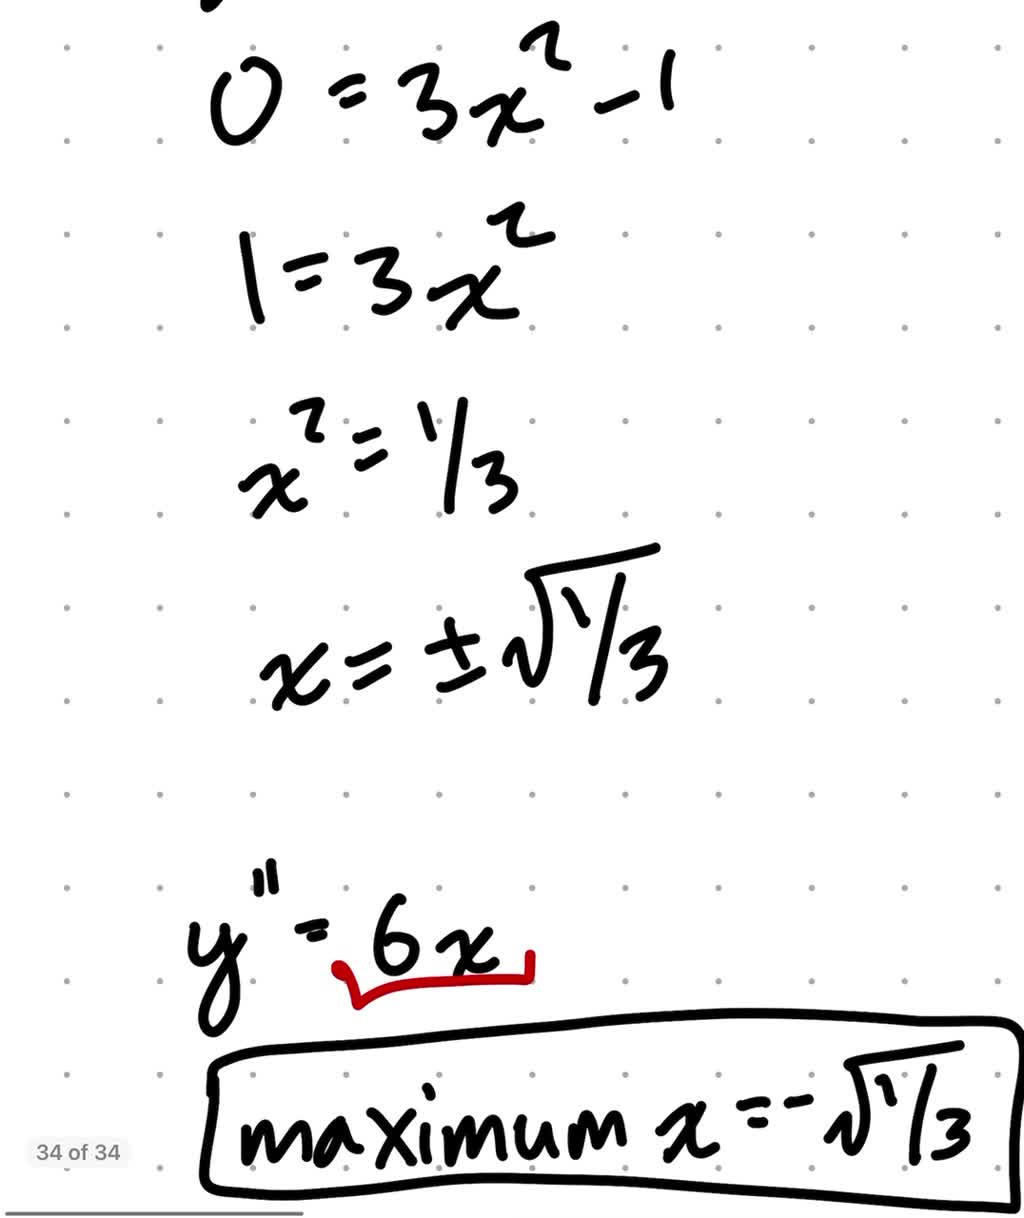 0 = 3x² - 1
1 = 3x²
x² = 1/3
x = ±√1/3
y" = 6x
maximum x = -√1/3
34 of 34